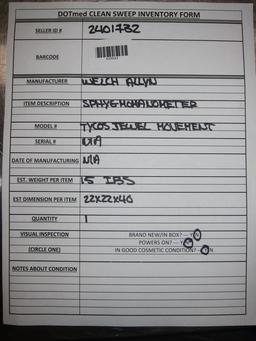 DOTmed CLEAN SWEEP INVENTORY FORM
SELLER ID # 2401732
BARCODE
MANUFACTURER WELCH ALLYN
ITEM DESCRIPTION SPHYGMOMANOMETER
MODEL # TYCOS JEWEL MOVEMENT
SERIAL # N/A
DATE OF MANUFACTURING N/A
EST. WEIGHT PER ITEM 15 LBS
EST DIMENSION PER ITEM 22X22X40
QUANTITY 1
VISUAL INSPECTION BRAND NEW/IN BOX? --- Y N
POWERS ON? --- Y N
(CIRCLE ONE) IN GOOD COSMETIC CONDITION? - Y N
NOTES ABOUT CONDITION